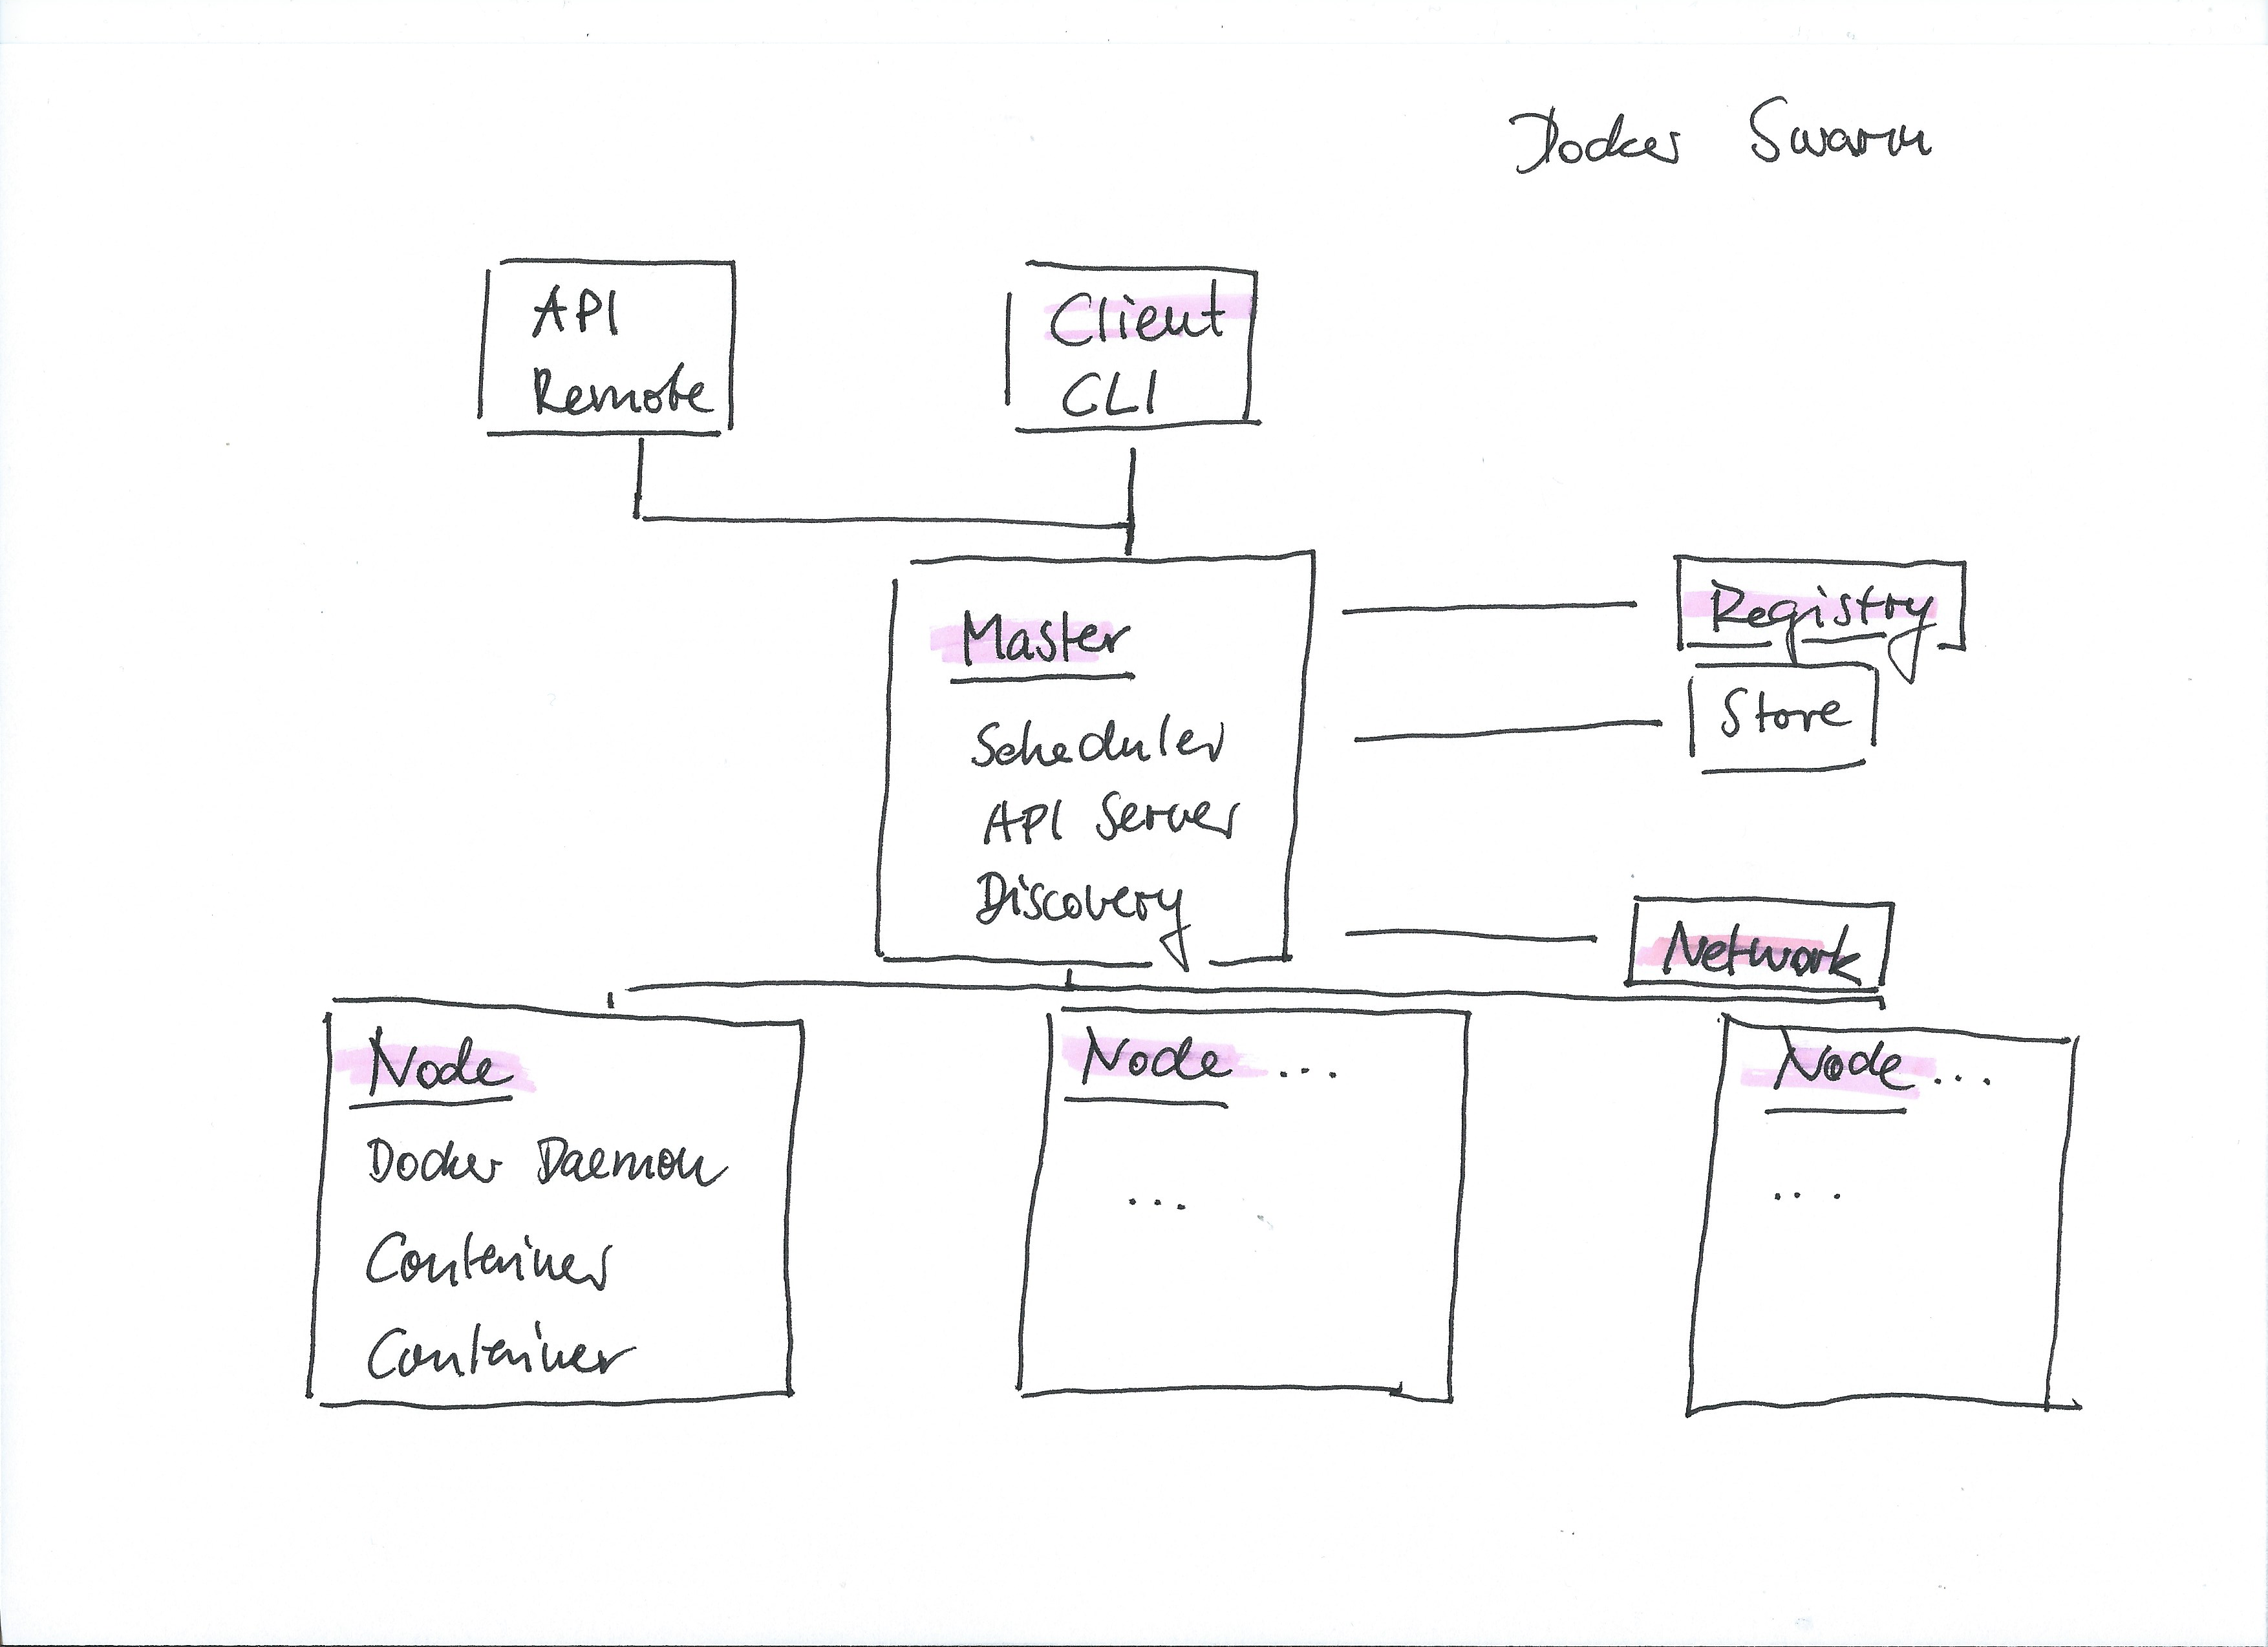 Docker Swarm
API
Remote
Client
CLI
Master
Scheduler
API Server
Discovery
Registry
Store
Network
Node
Docker Daemon
Container
Container
Node ...
...
Node ...
...